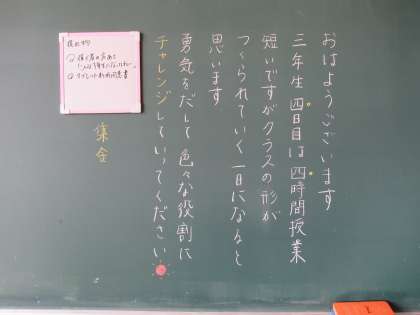 おはようございます
三年生四日目は四時間授業
短いですがクラスの形が
つくられていく一日になると
思います
勇気をだして色々な役割に
チャレンジしていってください
集合
提出物